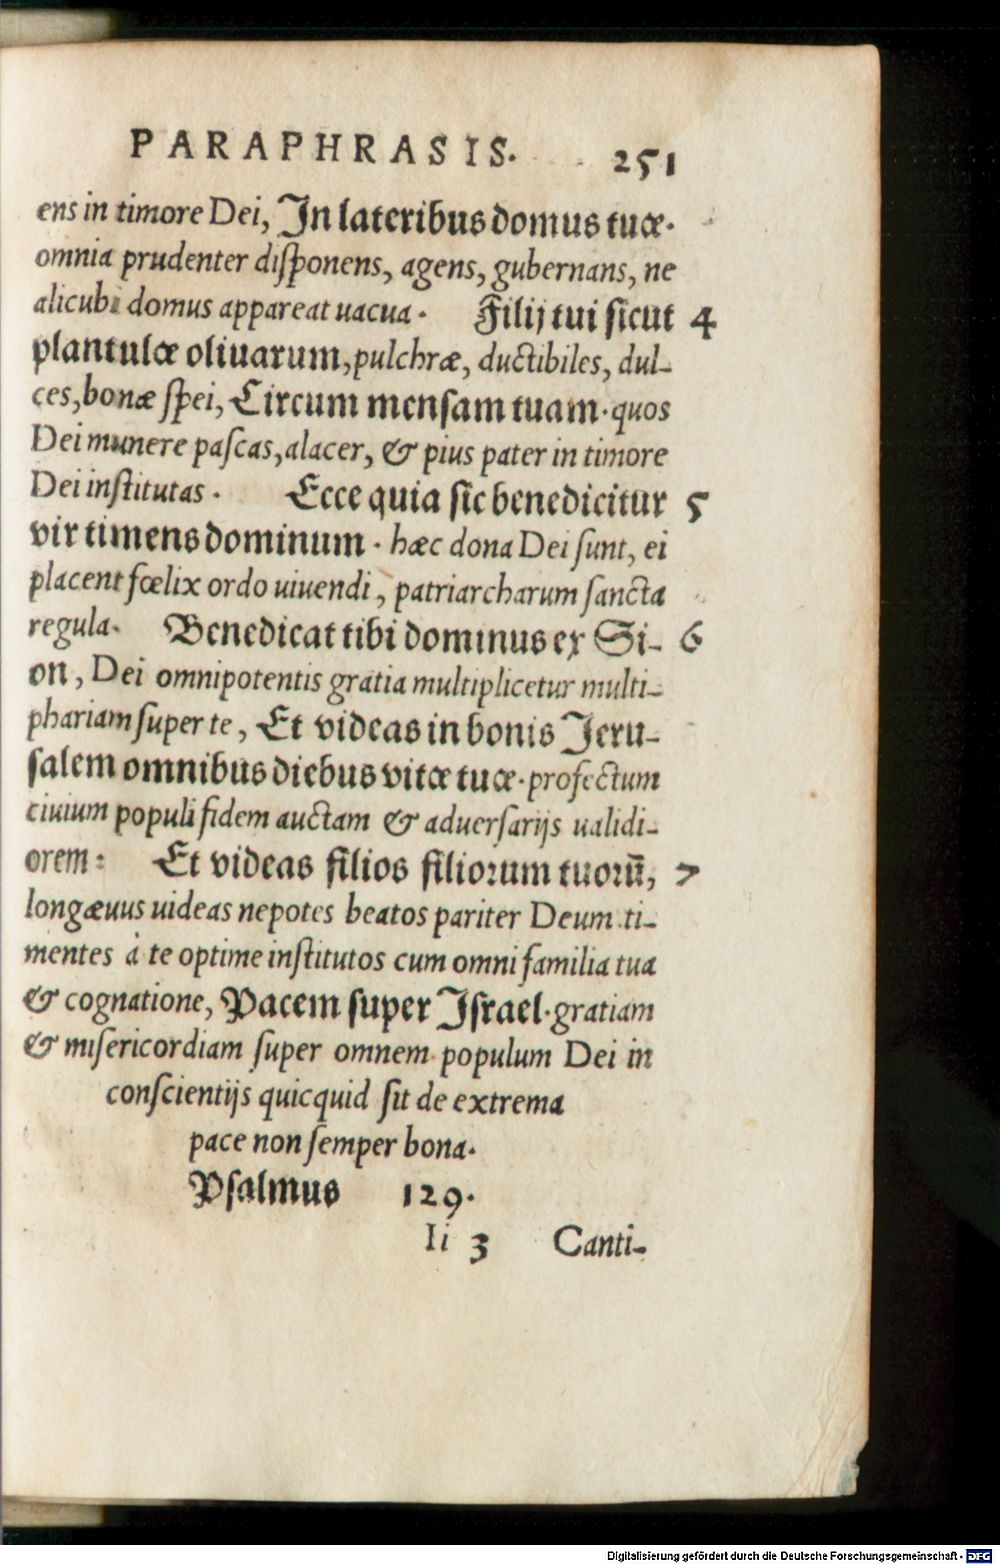 PARAPHRASIS. 251
ens in timore Dei, In lateribus domus tuæ.
omnia prudenter disponens, agens, gubernans, ne
alicubi domus appareat uacua. Filij tui sicut 4
plantulæ olivarum, pulchræ, ductibiles, dul-
ces, bonæ spei, Circum mensam tuam. quos
Dei munere pascas, alacer, & pius pater in timore
Dei institutas. Ecce quia sic benedicitur 5
vir timens dominum. hæc dona Dei sunt, ei
placent fœlix ordo uiuendi, patriarcharum sancta
regula. Benedicat tibi dominus ex Si- 6
on, Dei omnipotentis gratia multiplicetur multi-
phariam super te, Et videas in bonis Jeru-
salem omnibus diebus vitæ tuæ. profectum
ciuium populi fidem auctam & aduersarijs ualidi-
orem: Et videas filios filiorum tuorū, 7
longæuus uideas nepotes beatos pariter Deum ti-
mentes à te optime institutos cum omni familia tua
& cognatione, Pacem super Israel. gratiam
& misericordiam super omnem populum Dei in
conscientijs quicquid sit de extrema
pace non semper bona.
Psalmus 129.
Ii 3 Canti-
Digitalisierung gefördert durch die Deutsche Forschungsgemeinschaft - DFG